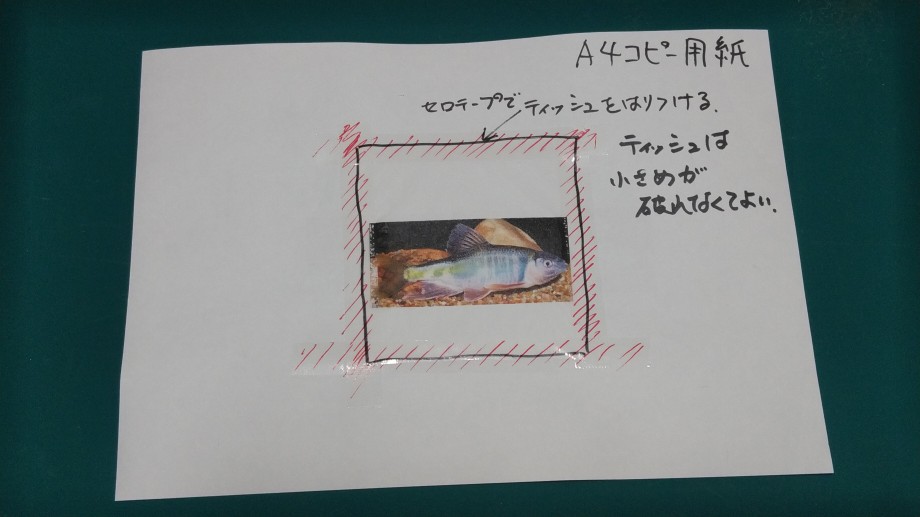 A4コピー用紙
セロテープでティッシュをはりつける.
ティッシュは
小さめが
破れなくてよい.